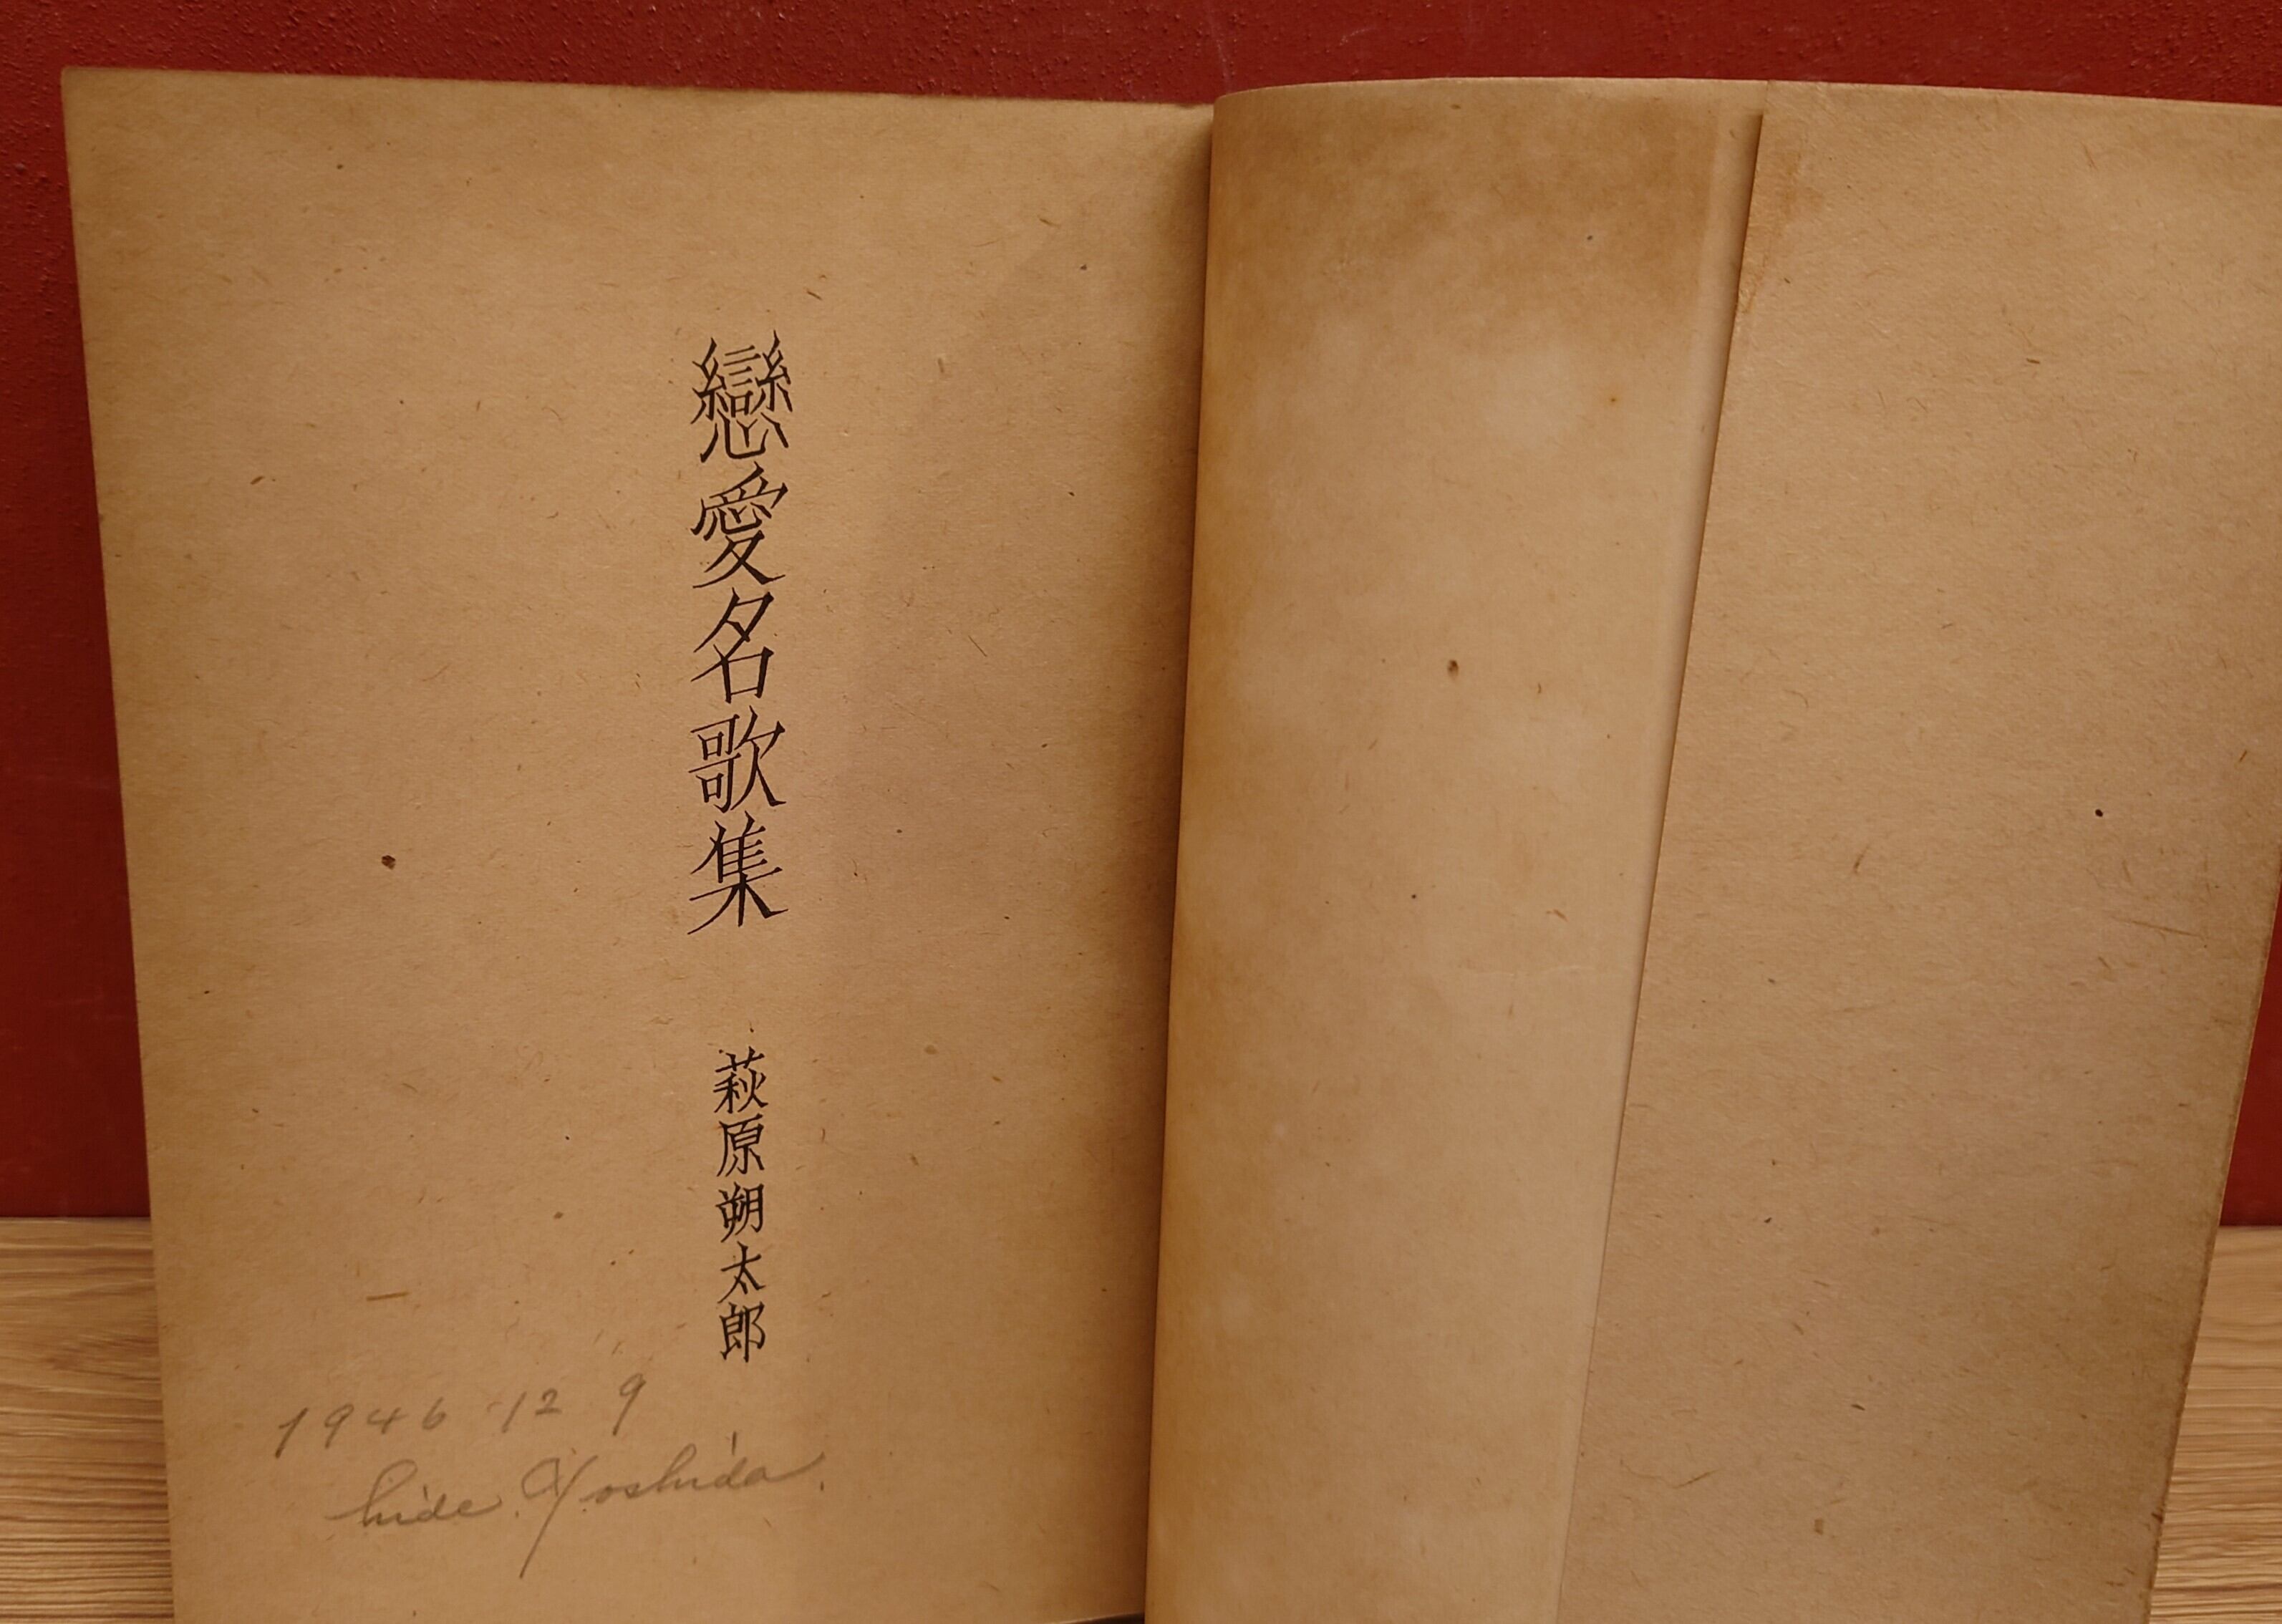 戀愛名歌集
萩原朔太郎
1946 12 9
hide. Yoshida.